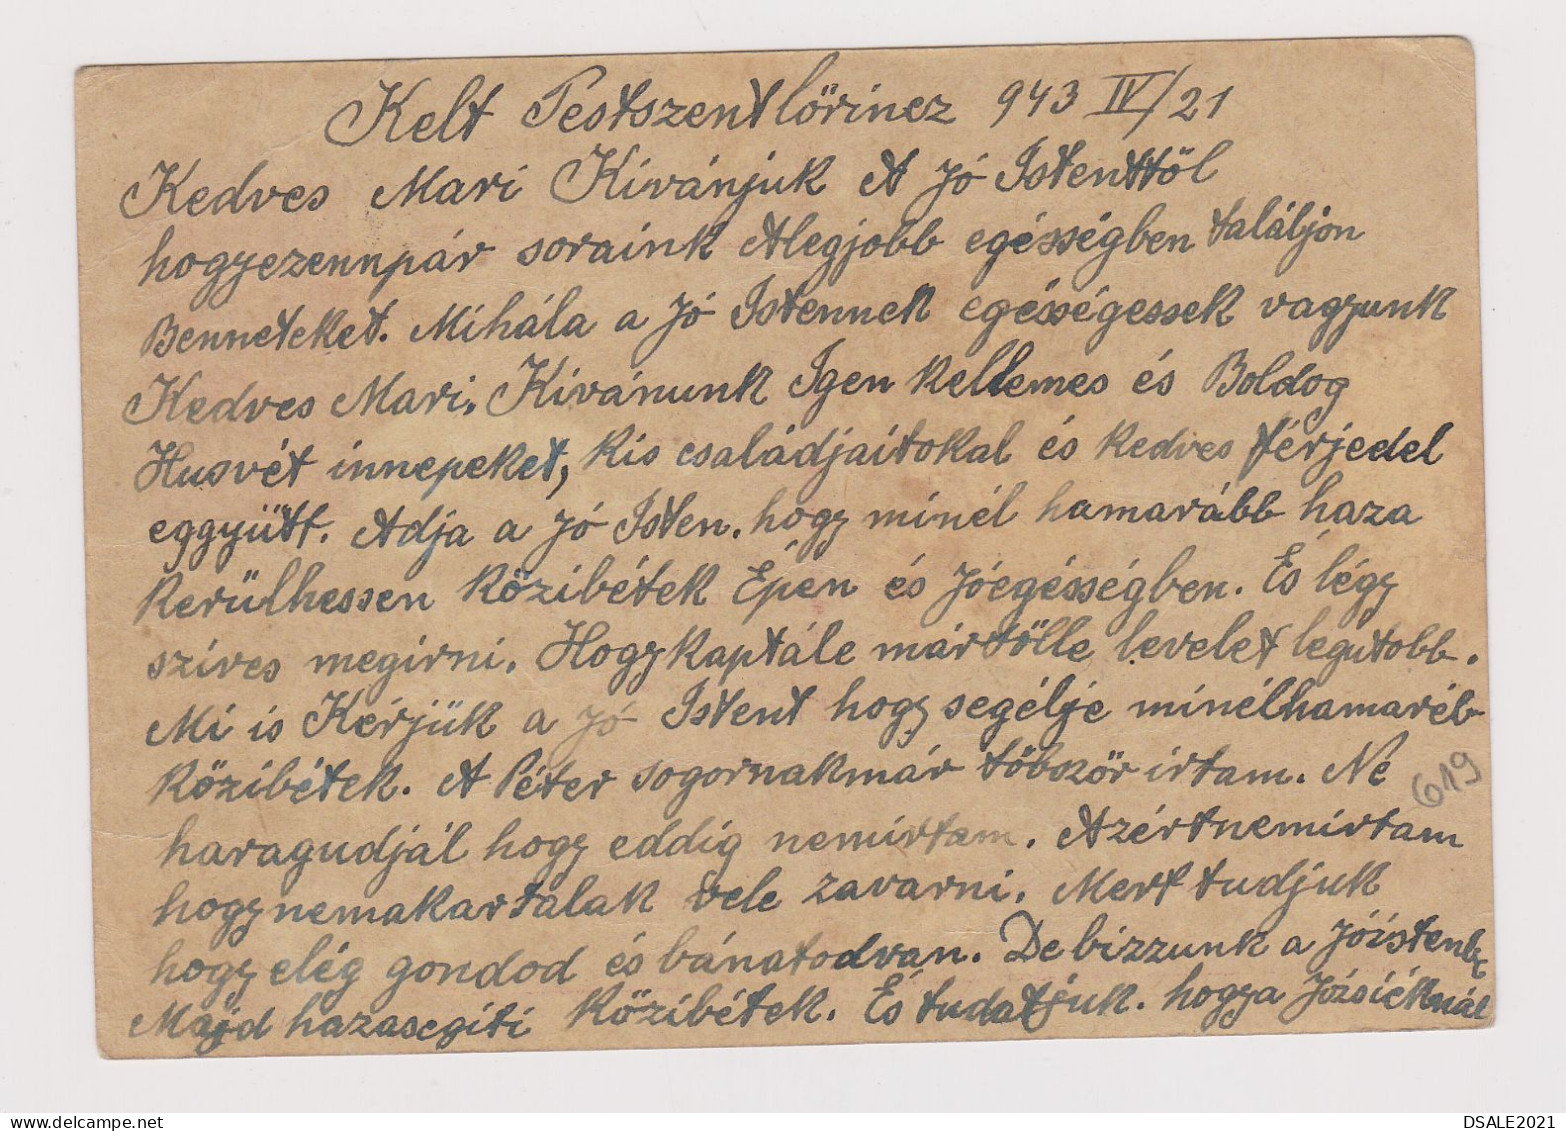 Kelt Pestszentlőrincz 943 IV/21
Kedves Mari Kívánjuk A Jó Istenttől
hogyezennpár soraink Alegjobb egésségben találjon
Benneteket. Mihála a Jó Istennek egésségessek vagyunk
Kedves Mari. Kívánunk Igen kellemes és Boldog
Husvét innepeket, kis családjaitokal és kedves férjedel
eggyütt. Adja a Jó Isten. hogy minél hamarább haza
kerülhessen közibétek Épen és Jóegésségben. És légy
szíves megirni. Hogykaptále mártőlle levelet legutobb.
Mi is Kérjük a Jó Istent hogysegélje minélhamaréb
közibétek. A Péter sogornakmár töbször irtam. Ne
haragudjál hogy eddig nemirtam. Azértnemirtam
hogynemakartalak vele zavarni. Mert tudjuk
hogyelég gondod és bánatodvan. Debizzunk a Jóistenbe
Majd hazasegiti közibétek. És tudatjuk. hogya Józsiéknál
619
DSALE2021